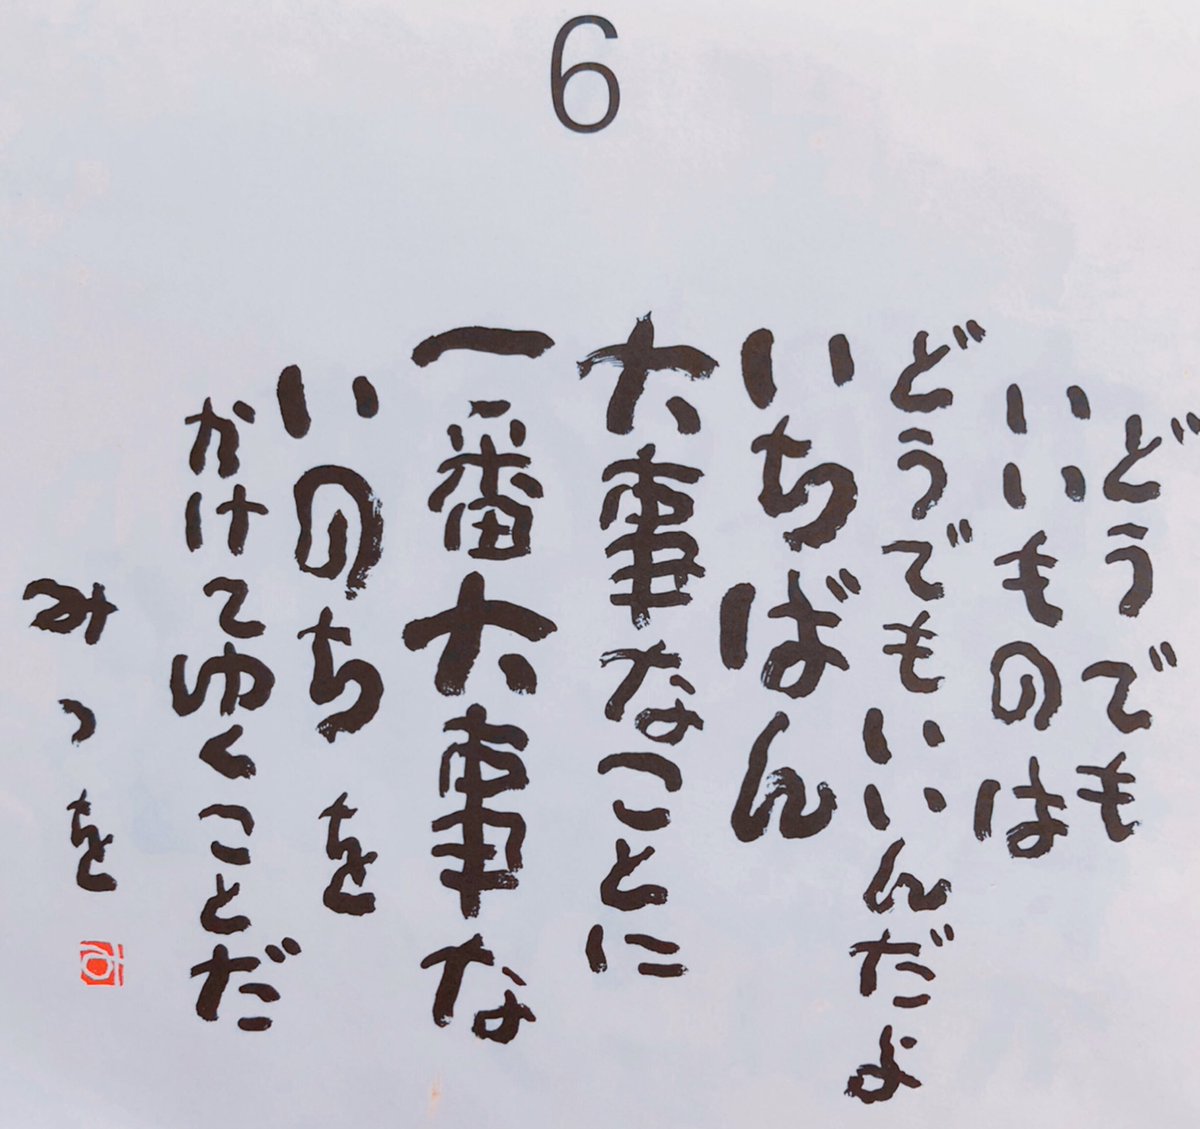 6
どうでも
いいものは
どうでもいいんだよ
いちばん
大事なことに
一番大事な
いのちを
かけてゆくことだ
みつを